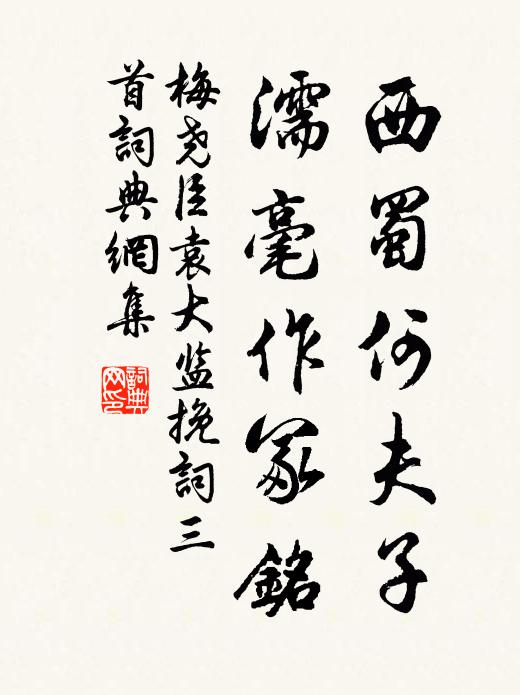 西蜀何夫子
濡毫作冢銘
梅尧臣袁大监挽詞三
首詞典網集
詞典
网印